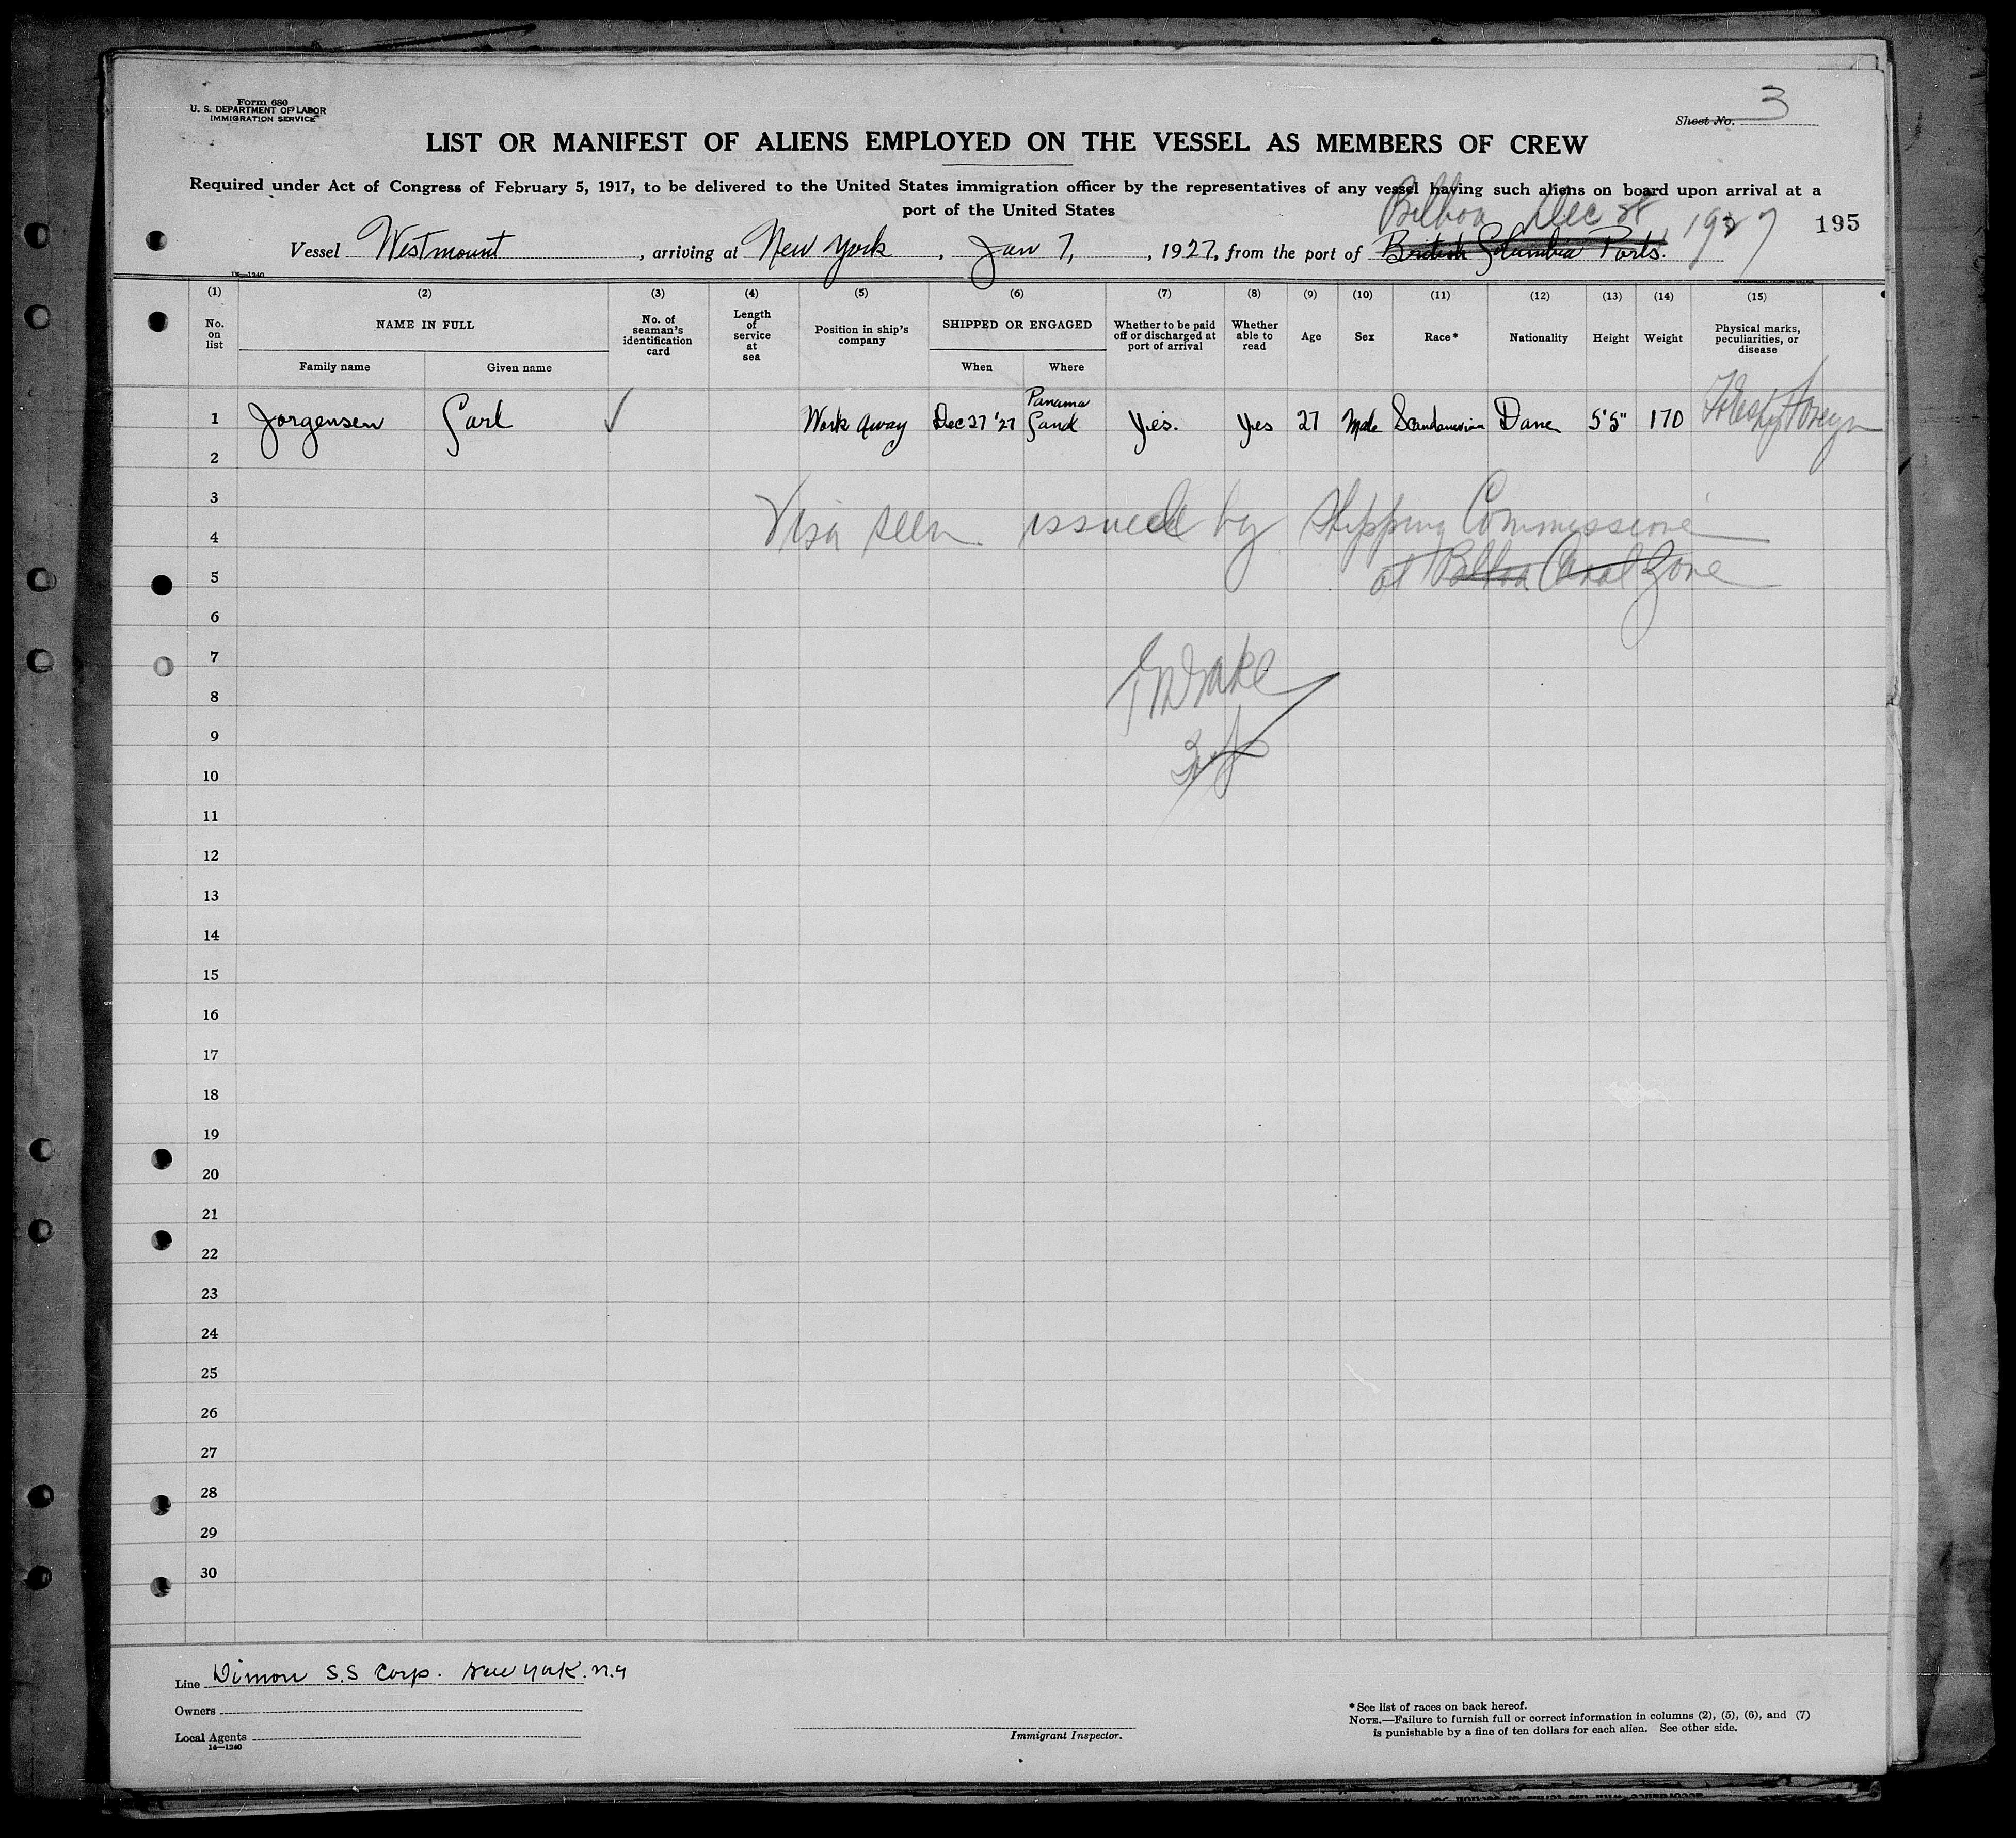 Form 680
U. S. DEPARTMENT OF LABOR
IMMIGRATION SERVICE
Sheet No. 3
LIST OR MANIFEST OF ALIENS EMPLOYED ON THE VESSEL AS MEMBERS OF CREW
Required under Act of Congress of February 5, 1917, to be delivered to the United States immigration officer by the representatives of any vessel having such aliens on board upon arrival at a
port of the United States
Balboa Dec 28 1927
195
Vessel Westmount, arriving at New York, Jan 7, 1927, from the port of British Columbia Ports.
14—1240
(1) (2) (3) (4) (5) (6) (7) (8) (9) (10) (11) (12) (13) (14) (15)
No. on list
NAME IN FULL
Family name
Given name
No. of seaman's identification card
Length of service at sea
Position in ship's company
SHIPPED OR ENGAGED
When
Where
Whether to be paid off or discharged at port of arrival
Whether able to read
Age
Sex
Race*
Nationality
Height
Weight
Physical marks, peculiarities, or disease
1 Jorgensen Carl ✓ Work Away Dec 27 '27 Panama Canal Yes. Yes 27 Male Scandanavian Dane 5'5" 170
2
3
Visa seen issued by Shipping Commissione
4
at Balboa Canal Zone
5
6
7
8
9
10
11
12
13
14
15
16
17
18
19
20
21
22
23
24
25
26
27
28
29
30
Line Dimon S.S Corp. New York. N.Y
Owners
Local Agents
14—1240
Immigrant Inspector.
*See list of races on back hereof.
NOTE.—Failure to furnish full or correct information in columns (2), (5), (6), and (7)
is punishable by a fine of ten dollars for each alien. See other side.